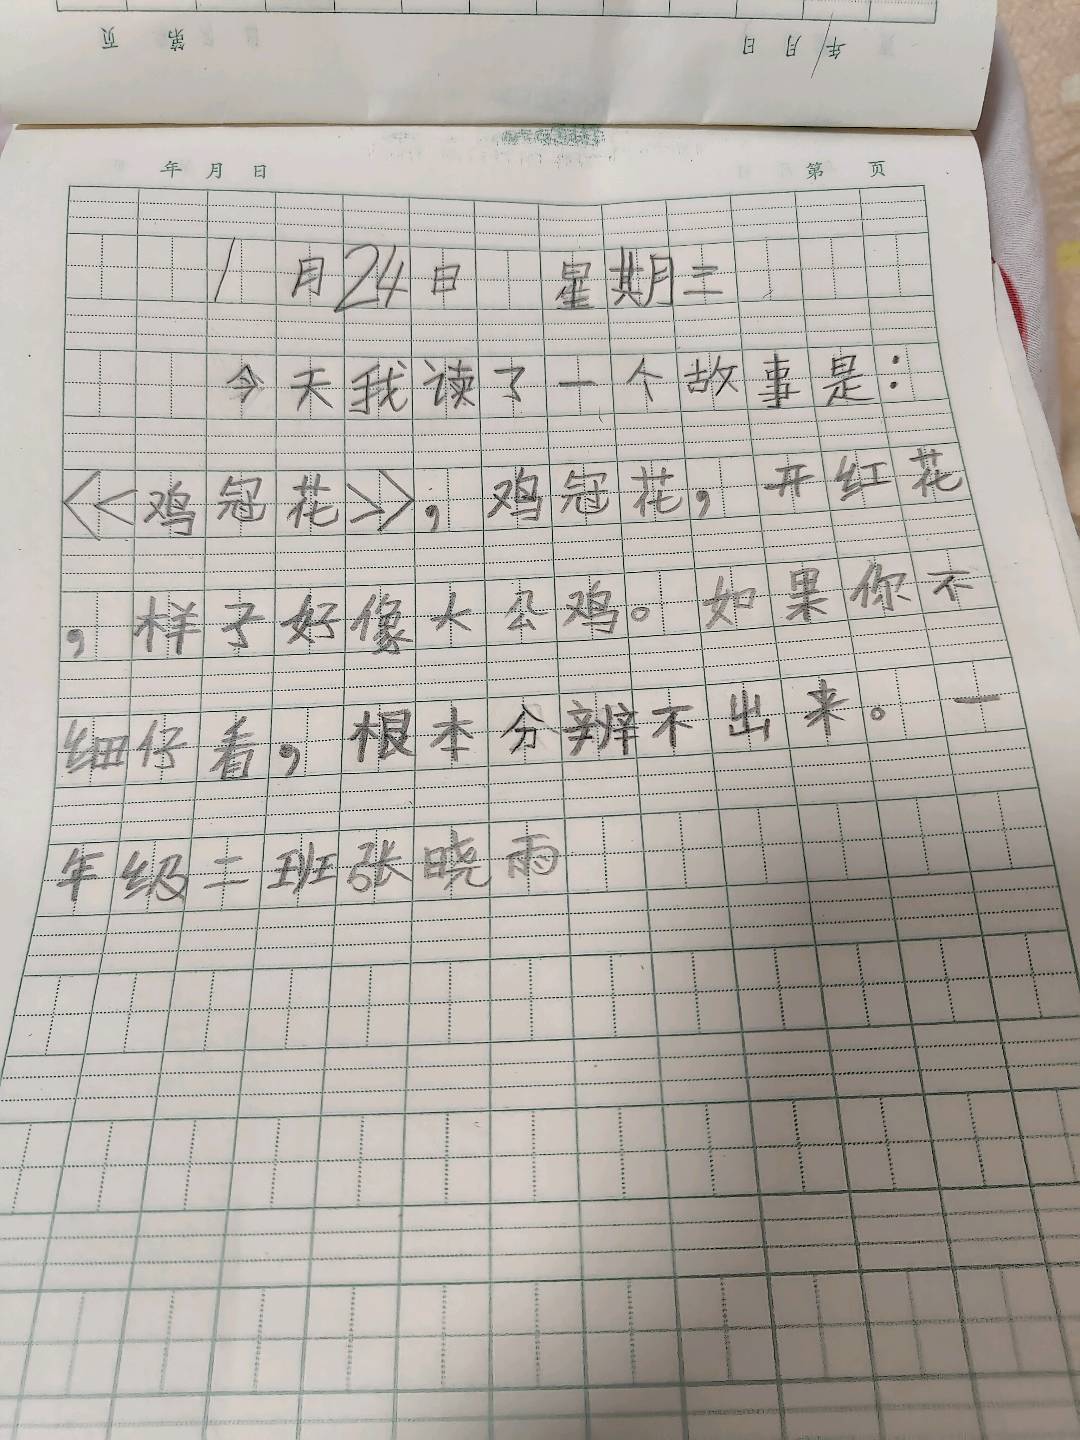 页 第 日 月 年
年 月 日 第 页
1月24日 星期三
今天我读了一个故事是：
《鸡冠花》，鸡冠花，开红花
，样子好像大公鸡。如果你不
细仔看，根本分辨不出来。一
年级二班张晓雨